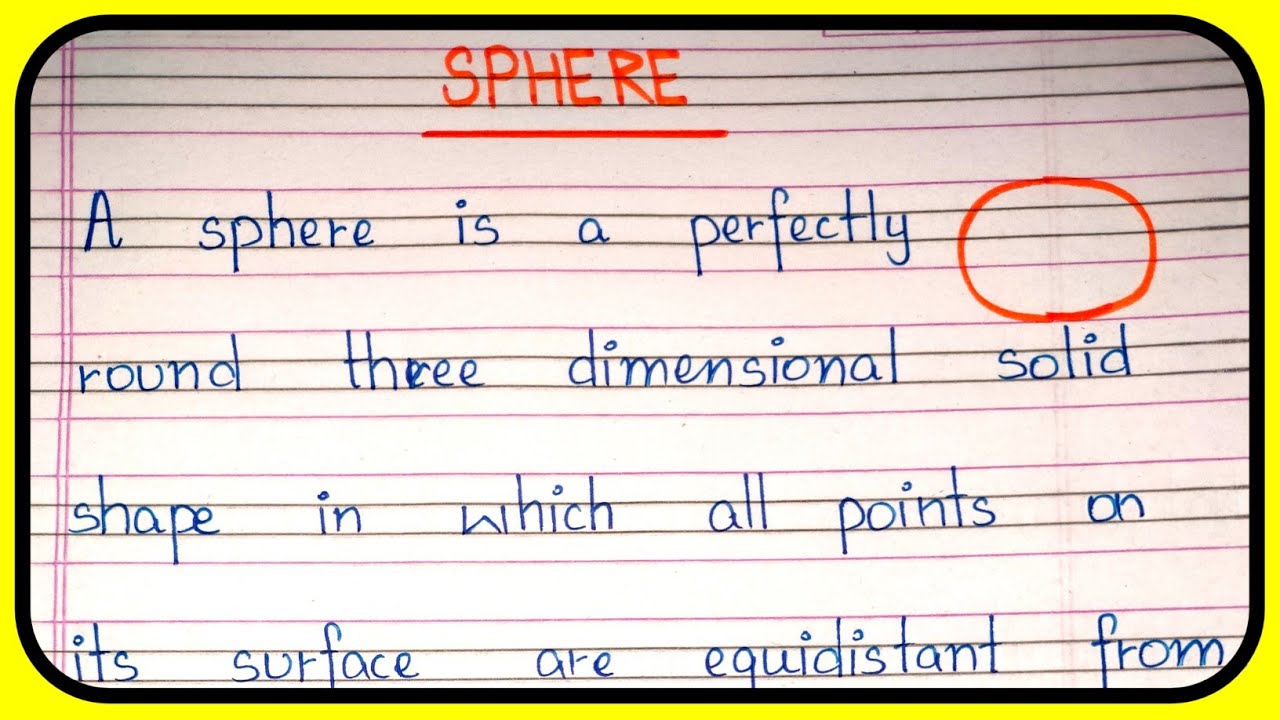 SPHERE
A sphere is a perfectly
round three dimensional solid
shape in which all points on
its surface are equidistant from